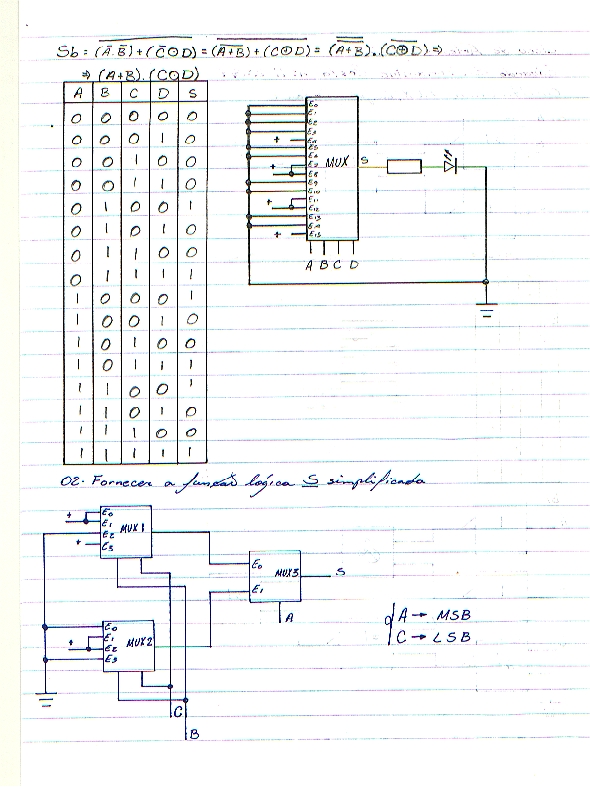 Sb = (Ā.B̄)+(C̄⊙D) = (A+B)+(C⊕D) = (A+B).(C⊕D) ⇒
⇒ (A+B).(C⊙D)
A B C D S
0 0 0 0 0
0 0 0 1 0
0 0 1 0 0
0 0 1 1 0
0 1 0 0 1
0 1 0 1 0
0 1 1 0 0
0 1 1 1 1
1 0 0 0 1
1 0 0 1 0
1 0 1 0 0
1 0 1 1 1
1 1 0 0 1
1 1 0 1 0
1 1 1 0 0
1 1 1 1 1
E0
E1
E2
E3
+ E4
E5
E6
+ E7
E8
E9
E10
+ E11
E12
E13
E14
+ E15
MUX S
A B C D
02- Fornecer a função lógica S simplificada
+ E0
E1
E2
+ E3
MUX1
E0
E1
MUX3 S
A
E0
+ E1
E2
E3
MUX2
C
B
A → MSB
C → LSB